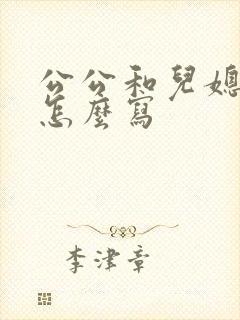 公公和兒媳
怎麼寫
李津章